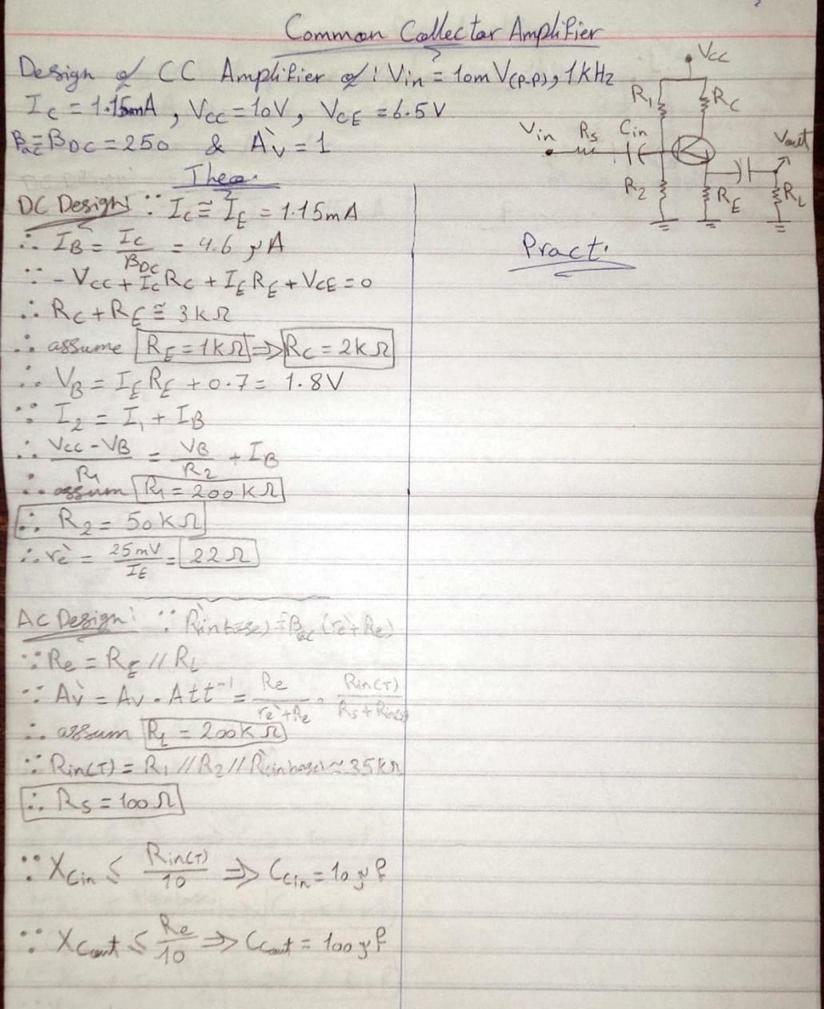 Common Collector Amplifier
Design of CC Amplifier of: Vin = 10m V(P-P), 1kHz
IC = 1.15mA, VCC = 10V, VCE = 6.5V
βac ≅ βDC = 250 & A`v = 1
VCC
R1
RC
Vin Rs Cin
Vout
R2
RE
RL
Theo.
Pract.
DC Design: ∵ IC ≅ IE = 1.15mA
∴ IB = IC / βDC = 4.6 μA
∵ -VCC + ICRC + IERE + VCE = 0
∴ RC + RE ≅ 3kΩ
∴ assume RE = 1kΩ ⇒ RC = 2kΩ
∴ VB = IERE + 0.7 = 1.8V
∵ I2 = I1 + IB
∴ VCC - VB / R1 = VB / R2 + IB
∴ assum R1 = 200kΩ
∴ R2 = 50kΩ
∴ re` = 25mV / IE = 22Ω
AC Design: ∵ Rin(base) = βac (re` + Re)
∵ Re = RE // RL
∵ A`v = Av . Att⁻¹ = Re / re` + Re . Rin(T) / Rs + Rin(T)
∴ assum RL = 200kΩ
∵ Rin(T) = R1 // R2 // Rin(base) ≈ 35kΩ
∴ Rs = 100Ω
∵ XCin ≤ Rin(T) / 10 ⇒ CCin = 10μF
∵ XCout ≤ Re / 10 ⇒ CCout = 100μF